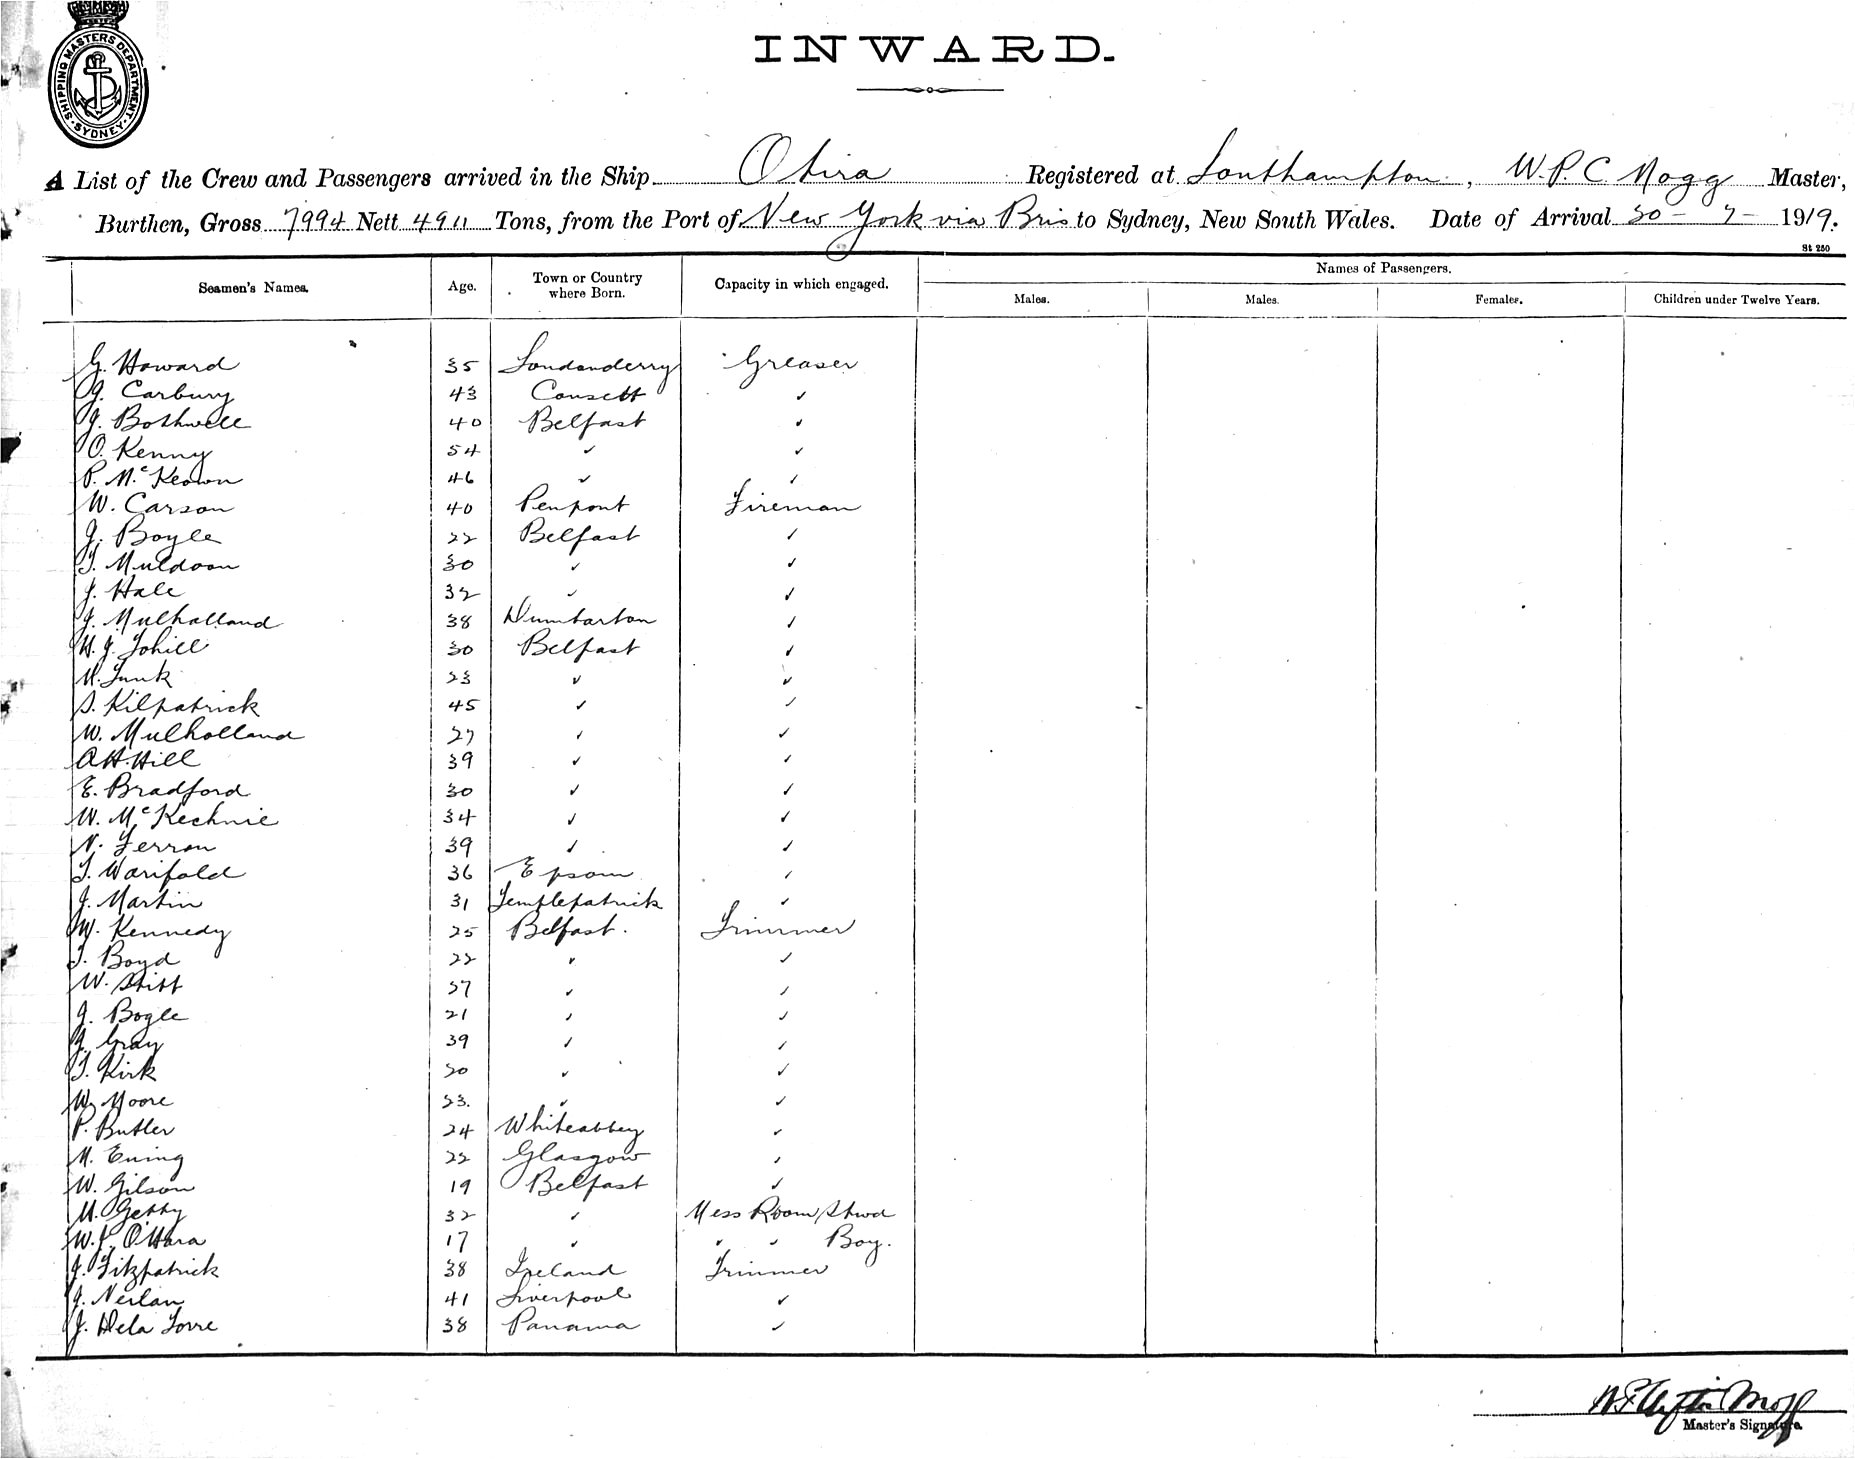 SHIPPING MASTERS DEPARTMENT. SYDNEY.
INWARD.
A List of the Crew and Passengers arrived in the Ship Otira Registered at Southampton, W.P.C. Mogg Master,
Burthen, Gross 7994 Nett 4911 Tons, from the Port of New York via Bris to Sydney, New South Wales. Date of Arrival 30-7-1919.
St 250
Seamen's Names. Age. Town or Country where Born. Capacity in which engaged. Names of Passengers.
Males. Males. Females. Children under Twelve Years.
G. Howard 35 Londonderry Greaser
J. Carbury 43 Consett ✓
J. Bothwell 40 Belfast ✓
O. Kenny 54 ✓ ✓
P. McKeown 46 ✓ ✓
W. Carson 40 Penpont Fireman
J. Boyle 22 Belfast ✓
T. Muldoon 30 ✓ ✓
J. Hale 32 ✓ ✓
J. Mulholland 38 Dumbarton ✓
W. J. Tohill 30 Belfast ✓
M. Funk 23 ✓ ✓
S. Kilpatrick 45 ✓ ✓
W. Mulholland 27 ✓ ✓
A. H. Hill 39 ✓ ✓
E. Bradford 30 ✓ ✓
W. McKechnie 34 ✓ ✓
N. Ferron 39 ✓ ✓
T. Warifold 36 Epsom ✓
J. Martin 31 Templepatrick ✓
W. Kennedy 25 Belfast. Trimmer
T. Boyd 22 ✓ ✓
W. Stitt ✓ ✓
J. Bogle 21 ✓ ✓
J. Gray 39 ✓ ✓
T. Kirk ✓ ✓
W. Moore 23. ✓ ✓
P. Butler 24 Whiteabbey ✓
M. Ewing 22 Glasgow ✓
W. Gilson 19 Belfast ✓
M. Getty 32 ✓ Mess Room Stwd
W. J. O'Hara 17 ✓ ✓ ✓ Boy.
J. Fitzpatrick 38 Ireland Trimmer
J. Neilan 41 Liverpool ✓
J. Dela Torre 38 Panama ✓
Master's Signature.